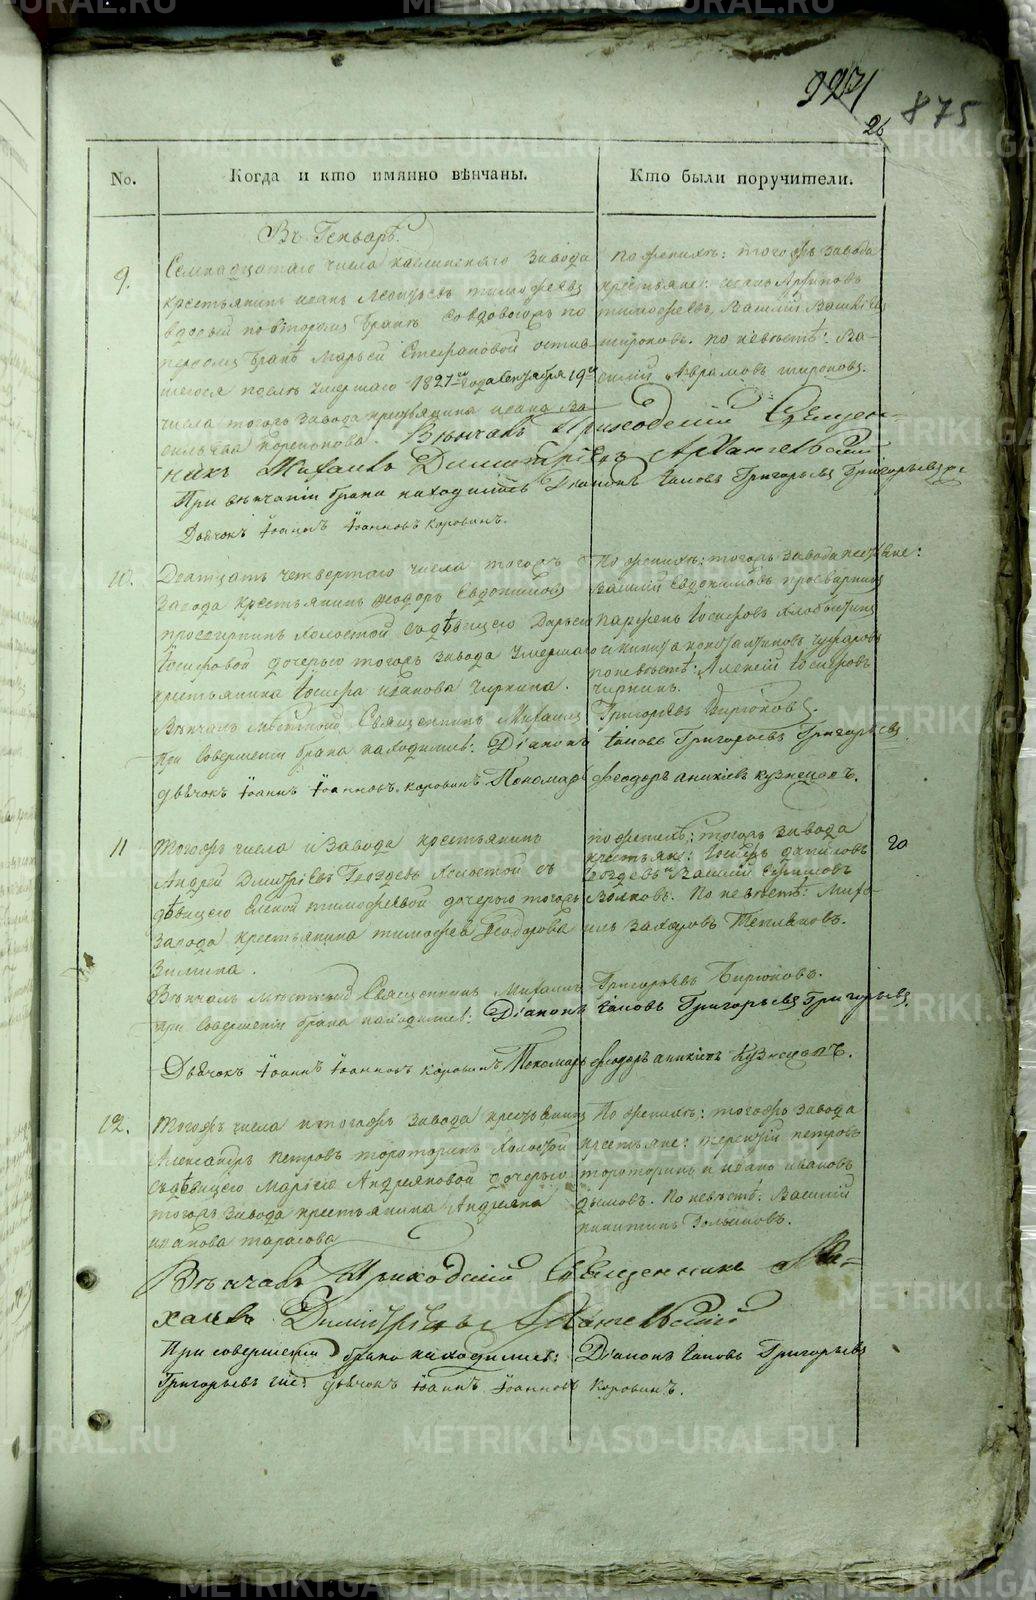 9231
26
875
No.
Когда и кто имянно вѣнчаны.
Кто были поручители.
Въ Генварѣ.
9.
Семнадцатаго числа каслинскаго завода
крестьянинъ иванъ Леонтьевъ тимофѣевъ
вдовый повторымъ бракѣ совдовою по
первомъ бракѣ Марьей Стефановой остав-
шеюся послѣ умершаго 1827го года Сентября 19го
числа тогожъ завода крестьянина ивана Ва-
сильева
Вѣнчалъ Приходскій Священ-
никъ Михаилъ Димитріевъ Архангельскій
При вѣнчаніи брака находились Діаконъ Іаковъ Григорьевъ Григорьевъ
Дьячокъ Іоаннъ Іоанновъ Коровинъ.
по женихѣ: тогожъ завода
крестьяне: иванъ Архиповъ
тимофѣевъ, Василій
широковъ. по невѣстѣ: Ва-
силій Аврамовъ широковъ.
10.
Двадцать четвертаго числа тогожъ
завода крестьянинъ Феодоръ Евдокимовъ
просвирнинъ холостой съ дѣвицею Дарьею
Іосифовой дочерью тогожъ завода умершаго
крестьянина Іосифа иванова Чиркина.
Вѣнчалъ мѣстной Священникъ Михаилъ Григорьевъ Бирюковъ.
При совершеніи брака находились: Діаконъ Іаковъ Григорьевъ Григорьевъ
дьячокъ Іоаннъ Іоанновъ Коровинъ Пономарь Феодоръ аникіевъ Кузнецовъ.
По женихѣ: тогожъ завода
Василій Евдокимовъ просвирнинъ
парфенъ Іосифовъ
и никита константиновъ
по невѣстѣ: Алексій Іосифовъ
Чиркинъ.
11
Тогожъ числа и завода крестьянинъ
Андрей Дмитріевъ Гвоздевъ Холостой съ
дѣвицею Еленой тимофѣевой дочерью тогожъ
завода крестьянина тимофея Феодорова
Зимина.
Вѣнчалъ мѣстной Священникъ Михаилъ Григорьевъ Бирюковъ.
При совершеніи брака находились: Діаконъ Іаковъ Григорьевъ Григорьевъ
Дьячокъ Іоаннъ Іоанновъ Коровинъ Пономарь Феодоръ аникіевъ Кузнецовъ.
по женихѣ: тогожъ завода
крестьян: Іосифъ даниловъ
Гвоздевъ и Василій
Волковъ. По невѣстѣ: Миха-
илъ захаровъ Тепляковъ.
20
12.
Тогожъ числа и тогожъ завода крестьянинъ
Александръ Петровъ тороторинъ Холостой
съ дѣвицею Маріею Андреяновой дочерью
тогожъ завода крестьянина Андреяна
иванова тарасова
Вѣнчалъ Приходскій Священникъ Ми-
хаилъ Димитріевъ Архангельскій
При совершеніи брака находились: Діаконъ Іаковъ Григорьевъ
Григорьевъ дьячокъ Іоаннъ Іоанновъ Коровинъ.
По женихѣ: тогожъ завода
крестьяне: терентій петровъ
тороторинъ и иванъ ивановъ
дымовъ. По невѣстѣ: Василій
никитинъ
METRIKI.GASO-URAL.RU